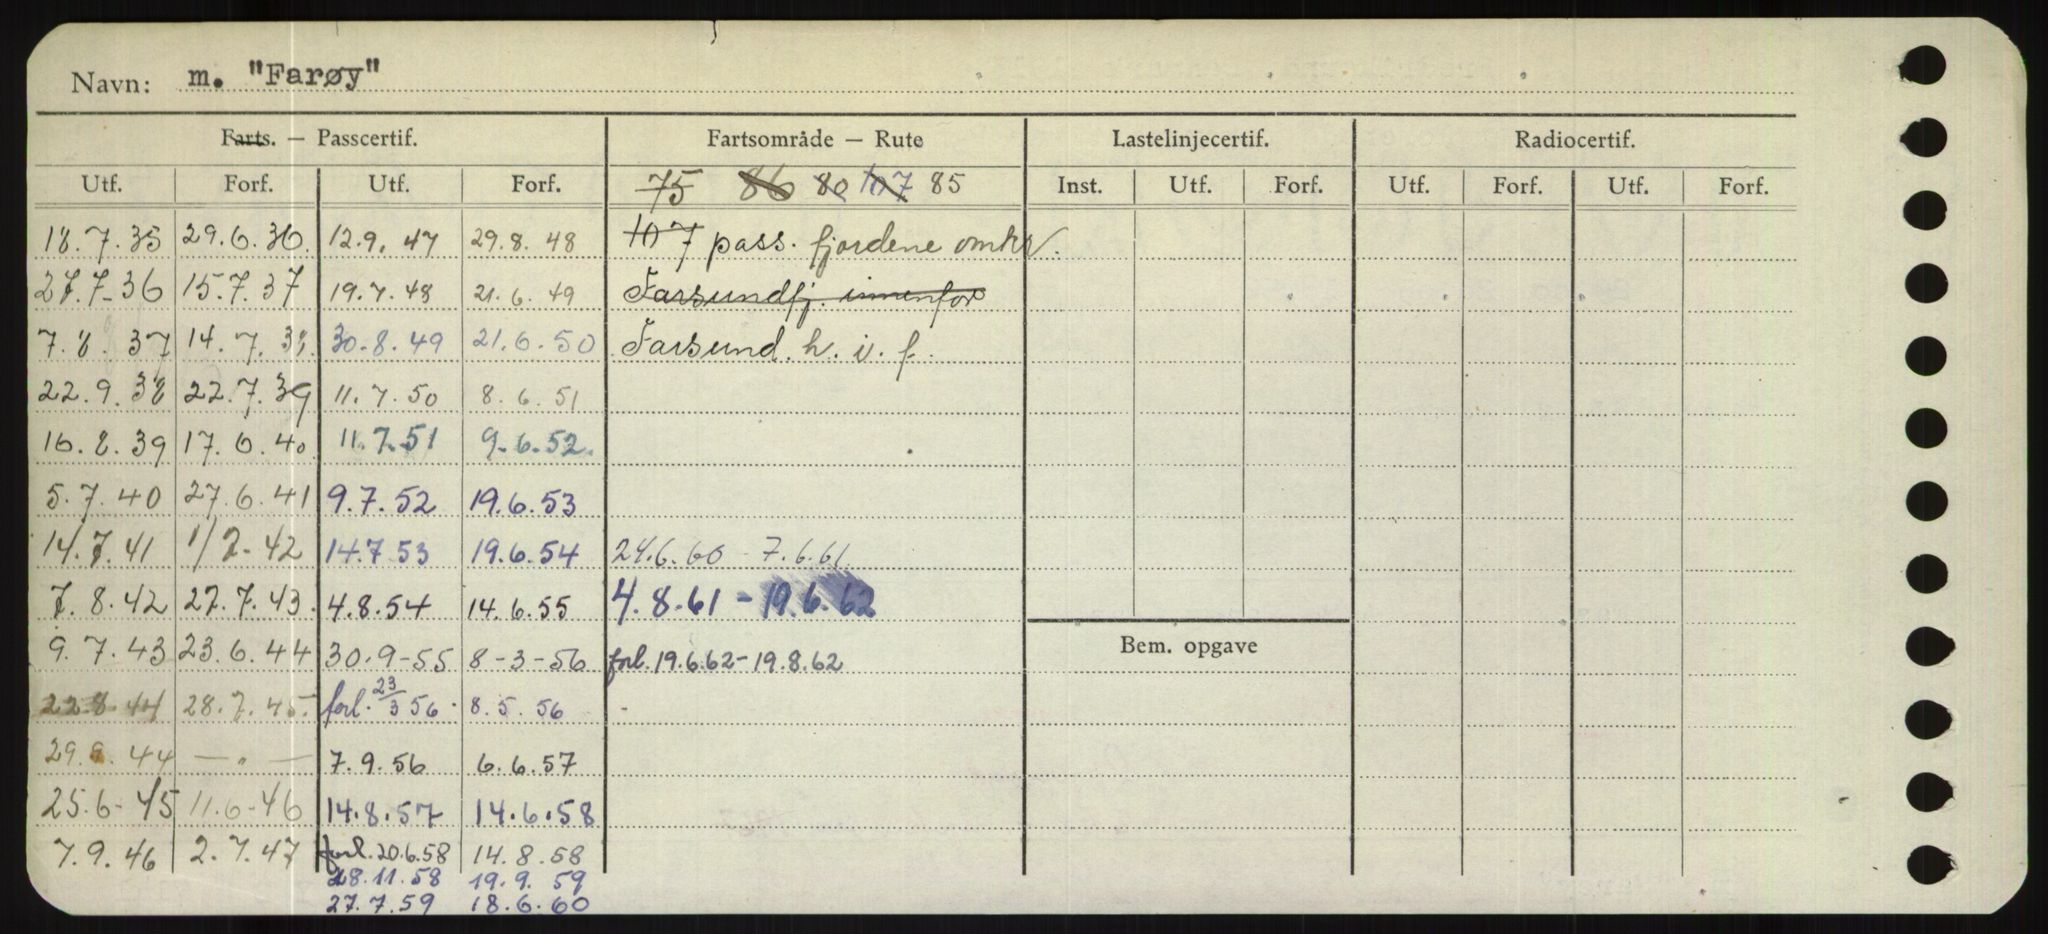 Navn: m. "Farøy"
Farts. — Passcertif. Fartsområde — Rute Lastelinjecertif. Radiocertif.
Utf. Forf. Utf. Forf. 75 86 80 107 85 Inst. Utf. Forf. Utf. Forf. Utf. Forf.
18.7.35 29.6.36. 12.9.47 29.8.48 107 pass. fjordene omkr.
27.7-36 15.7.37 19.7.48 21.6.49 Farsundfj. innenfor
7.8.37 14.7.38. 30.8.49 21.6.50 Farsund. h. i. f.
22.9.38 22.7.39 11.7.50 8.6.51
16.8.39 17.6.40 11.7.51 9.6.52.
5.7.40 27.6.41 9.7.52 19.6.53
14.7.41 1/7-42 14.7.53 19.6.54 24.6.60 - 7.6.61.
7.8.42 27.7.43. 4.8.54 14.6.55 4.8.61 - 19.6.62
9.7.43 23.6.44 30.9-55 8-3-56 forl. 19.6.62 - 19.8.62
22.8.44 28.7.45. forl. 23/3 56. 8.5.56 -
29.9.44 — " — 7.9.56 6.6.57
25.6-45 11.6-46 14.8.57 14.6.58
7.9.46 2.7.47 forl. 20.6.58 14.8.58
28.11.58 19.9.59
27.7.59 18.6.60
Bem. opgave